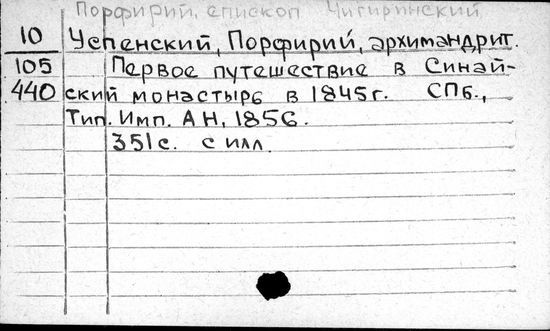 Порфирий, епископ Чигиринский
10 Успенский, Порфирий, архимандрит.
105 Первое путешествие в Синай-
440 ский монастырь в 1845 г. СПб.,
Тип. Имп. АН, 1856.
351 с. с илл.